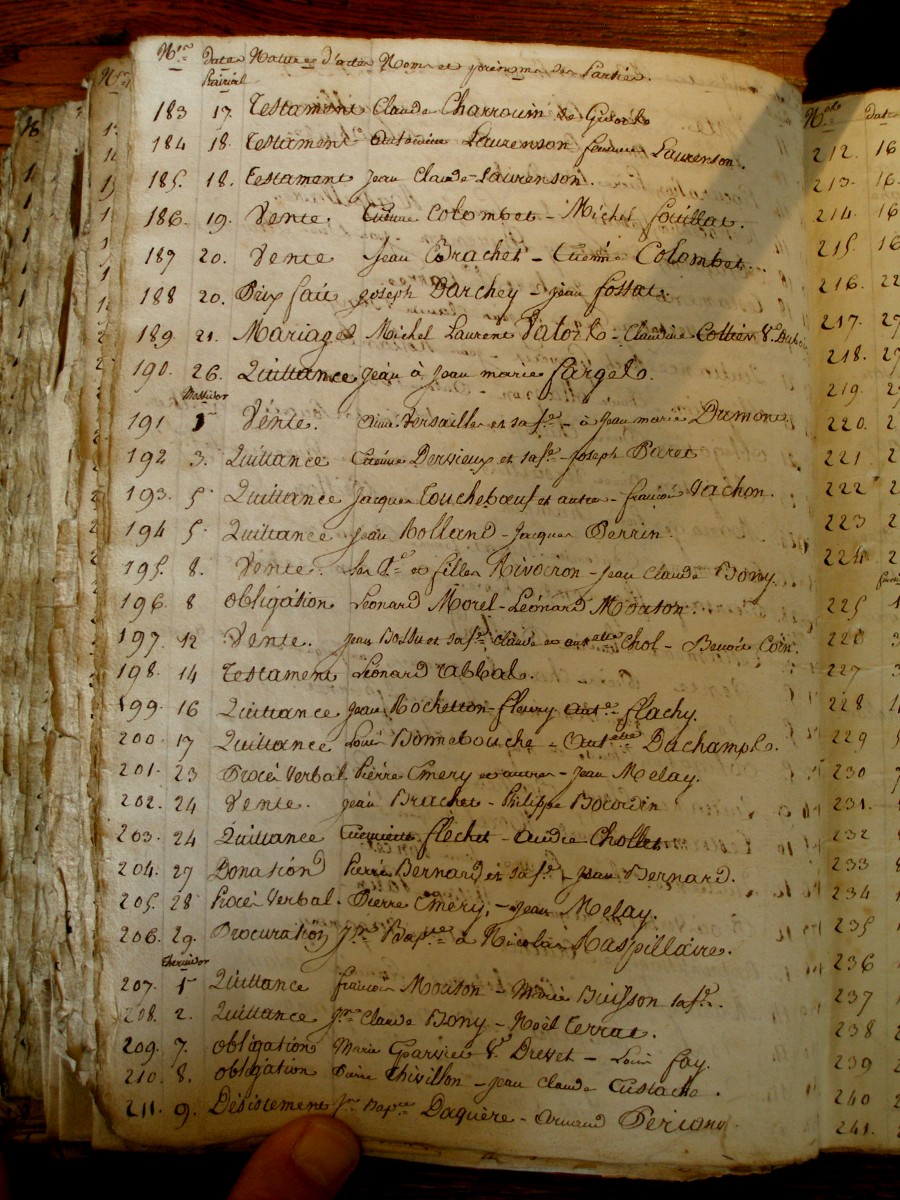 Nos Dates Natures d'actes Noms et prénoms des Parties.
Prairial
183 17. Testament Claude Charrouin de
184 18. Testament Laurenson femme Laurenson.
185. 18. Testament Jean Claude Laurenson.
186. 19. Vente. Etienne Colombet - Michel fouillat.
187 20. Vente Jean Brachet - Etienne Colombet...
188 20. Prix fait joseph Darchey - jean fossat.
189 21. Mariage Michel Laurent - Claudine Ve
190. 26. Quittance jean à Jean marie fargets.
Messidor
191 1er Vente. Versailles et sa fe - à Jean marie Dumont.
192 3. Quittance Etienne Dervieux et sa fe - joseph Paret
193. 5 Quittance Jacques Touchebœuf et autre - françois Vachon.
194 5. Quittance Jean Rolland - Jacques Perrin.
195. 8. Vente. Les et filles Rivoiron - Jean Claude Bony.
196. 8 obligation Léonard Morel - Léonard Mouton.
197. 12 Vente. Jean Bossu et sa fe Claude et Chol - Benoit Coin.
198. 14 Testament Léonard abbal.
199. 16 Quittance Jean Rochetton - fleury flachy.
200. 17 Quittance Louis Bonnebouche - Duchamp.
201. 23 Procès Verbal. Pierre Emery et autres - Jean Melay.
202. 24 Vente. jean Brachet - Philippe Bourdin
203. 24 Quittance flechet - andré Chollet.
204. 27 Donation Pierre Bernard et sa fe - Jean Bernard.
205. 28 Procès Verbal. Pierre Emery, - Jean Melay.
206. 29. Procuration à Nicolas Raspillaire.
Thermidor
207. 1er Quittance françois Mouton - Marie Buisson sa fe.
208. 2. Quittance Claude Bony - Noël Terrat.
209. 7. obligation Marie Garnier Ve Drevet - Louis fay.
210. 8. obligation Pierre Thivillon - Jean Claude Eustache.
211. 9. Désistement Daguère - Armand
Nos Date
212. 16
213. 16.
214. 16
215. 16
216. 22
217. 27
218. 27
219.
220.
221.
222
223
224.
225
226
227
228
229
230
231.
232
233
234
235
236
237
238
239
240
241.